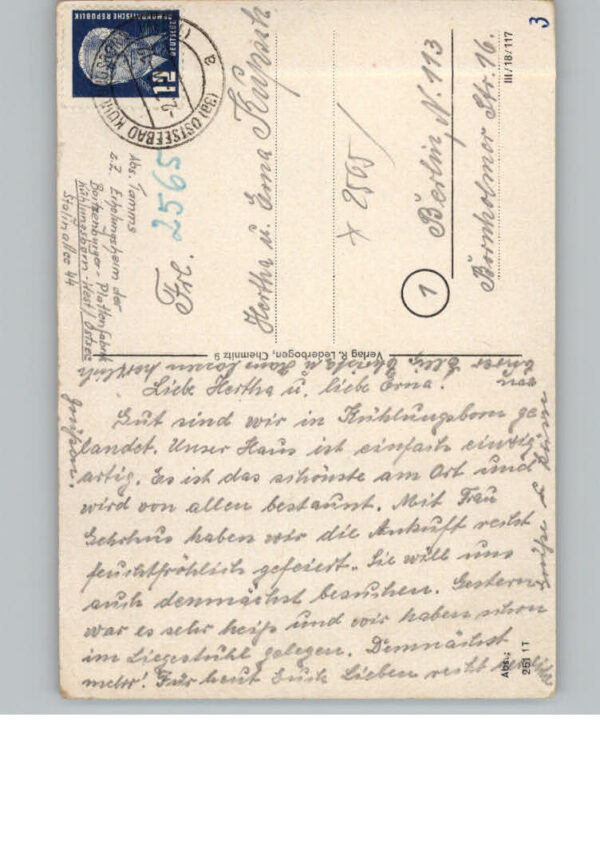 DEUTSCHE
DEMOKRATISCHE REPUBLIK
12
(3a) OSTSEEBAD KÜHLUNGSBORN
a
3
III/18/117
Abs. Tamms
z.Z. Erholungsheim der
Boizenburger-Plattenfabrik
Kühlungsborn-West/Ostsee
Stalinallee 44
2565
Frl.
Hertha u. Erna
x 2565 /
1
Berlin N. 113
Bornholmer Str. 16.
Verlag R. Lederbogen, Chemnitz 9
Liebe Hertha u. liebe Erna.
Gut sind wir in Kühlungsborn ge
landet. Unser Haus ist einfach einzig
artig. Es ist das schönste am Ort und
wird von allen bestaunt. Mit Frau
haben wir die Ankunft recht
feuchtfröhlich gefeiert. Sie will uns
auch demnächst besuchen. Gestern
war es sehr heiß und wir haben schon
im Liegestuhl gelegen. Demnächst
mehr! Für heut Euch Lieben recht
Grüße
von
herzlich
grüßen.
2611 T